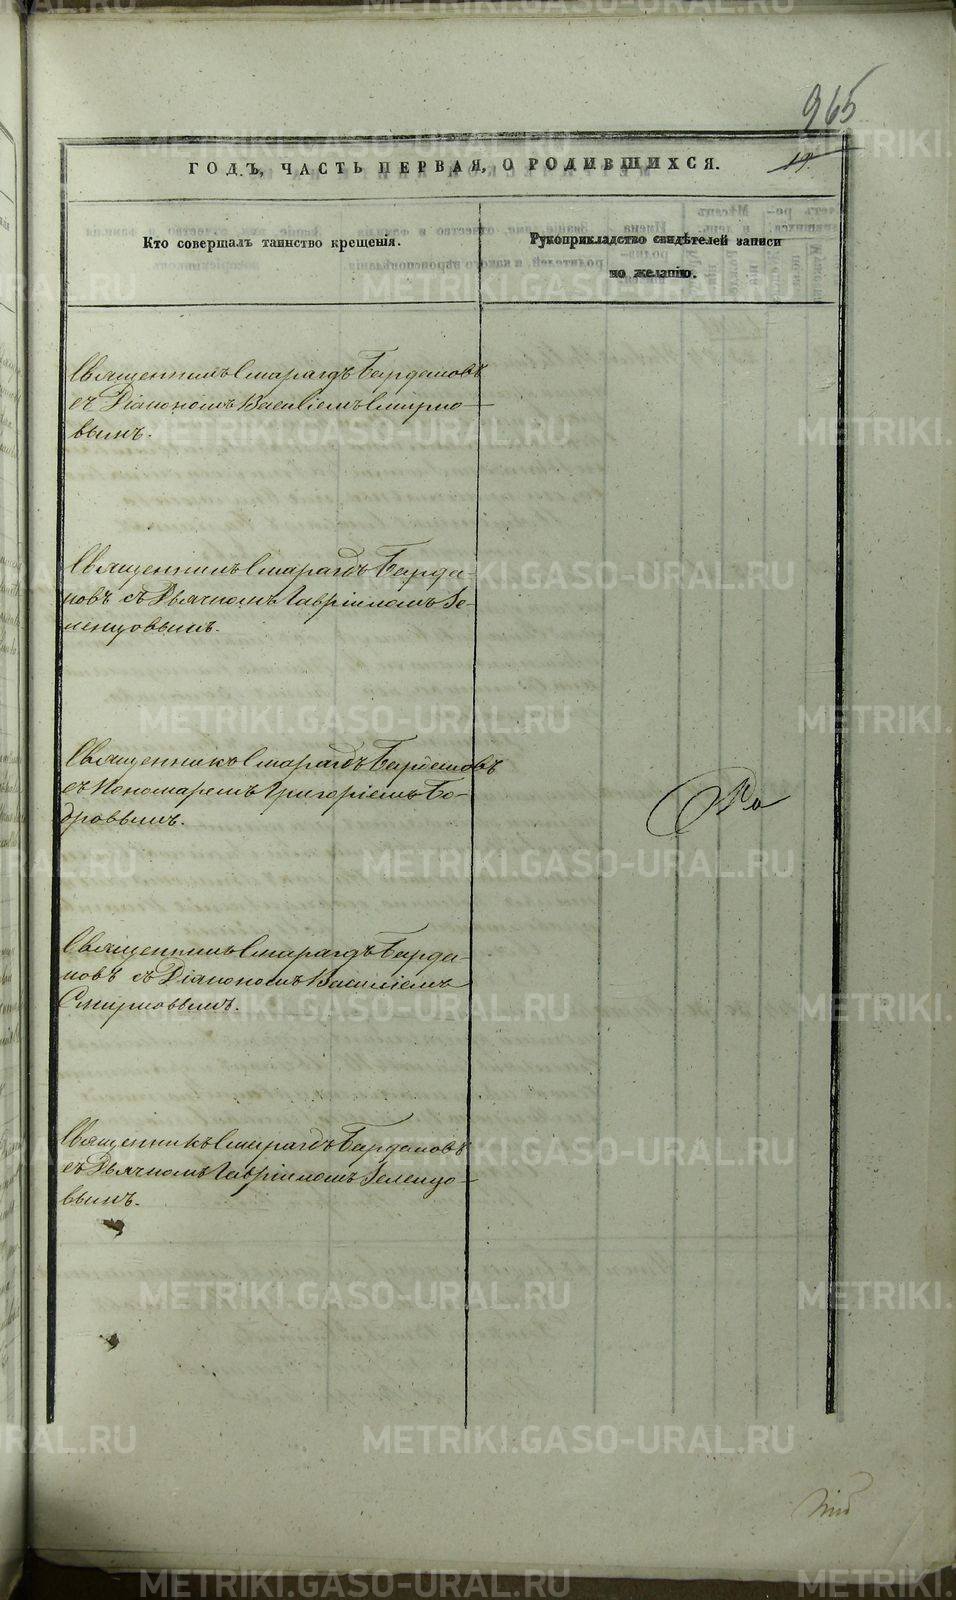 965
19.
ГОДЪ, ЧАСТЬ ПЕРВАЯ, О РОДИВШИХСЯ.
Кто совершалъ таинство крещенія.
Рукоприкладство свидѣтелей записи
по желанію.
Священникъ Смарагдъ
съ Діакономъ Василіемъ Смирно-
вымъ.
Священникъ Смарагдъ
съ Дьячкомъ Гавріиломъ Зе-
ленцовымъ.
Священникъ Смарагдъ
съ Пономаремъ Григоріемъ Бо-
бровымъ.
Священникъ Смарагдъ
съ Діакономъ Василіемъ
Смирновымъ.
Священникъ Смарагдъ
съ Дьячкомъ Гавріиломъ Зеленцо-
вымъ.
METRIKI.GASO-URAL.RU